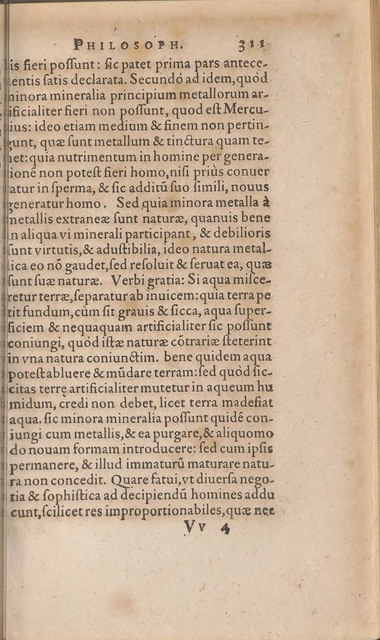 PHILOSOPH. 311
is fieri possunt: sic patet prima pars antece-
entis satis declarata. Secundò ad idem, quòd
minora mineralia principium metallorum ar-
ificialiter fieri non possunt, quod est Mercu-
ius: ideo etiam medium & finem non pertin-
gunt, quæ sunt metallum & tinctura quam te-
et: quia nutrimentum in homine per genera-
ionē non potest fieri homo, nisi priùs conuer
atur in sperma, & sic additū suo simili, nouus
generatur homo. Sed quia minora metalla à
metallis extraneæ sunt naturæ, quanuis bene
n aliqua vi minerali participant, & debilioris
sunt virtutis, & adustibilia, ideo natura metal-
ica eo nō gaudet, sed resoluit & seruat ea, quæ
sunt suæ naturæ. Verbi gratia: Si aqua misce-
retur terræ, separatur ab inuicem: quia terra pe
tit fundum, cùm sit grauis & sicca, aqua super-
ficiem & nequaquam artificialiter sic possunt
coniungi, quòd istæ naturæ cōtrariæ steterint
in vna natura coniunctim. bene quidem aqua
potest abluere & mūdare terram: sed quòd sic-
citas terrę artificialiter mutetur in aqueum hu
midum, credi non debet, licet terra madefiat
aqua. sic minora mineralia possunt quidē con-
iungi cum metallis, & ea purgare, & aliquomo
do nouam formam introducere: sed cum ipsis
permanere, & illud immaturū maturare natu-
ra non concedit. Quare fatui, vt diuersa nego-
tia & sophistica ad decipiendū homines addu
cunt, scilicet res improportionabiles, quæ nec
Vv 4